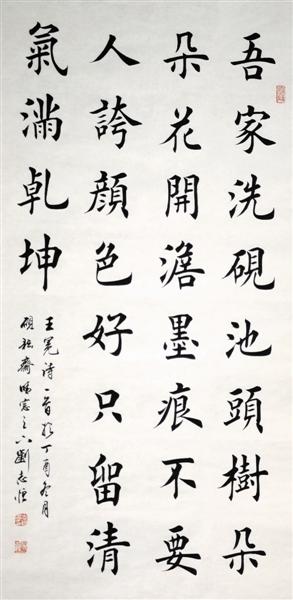 吾家洗硯池頭樹朵
朵花開澹墨痕不要
人誇顏色好只留清
氣滿乾坤
王冕詩一首於丁酉冬月
硯耘齋晴窗之下劉志恒